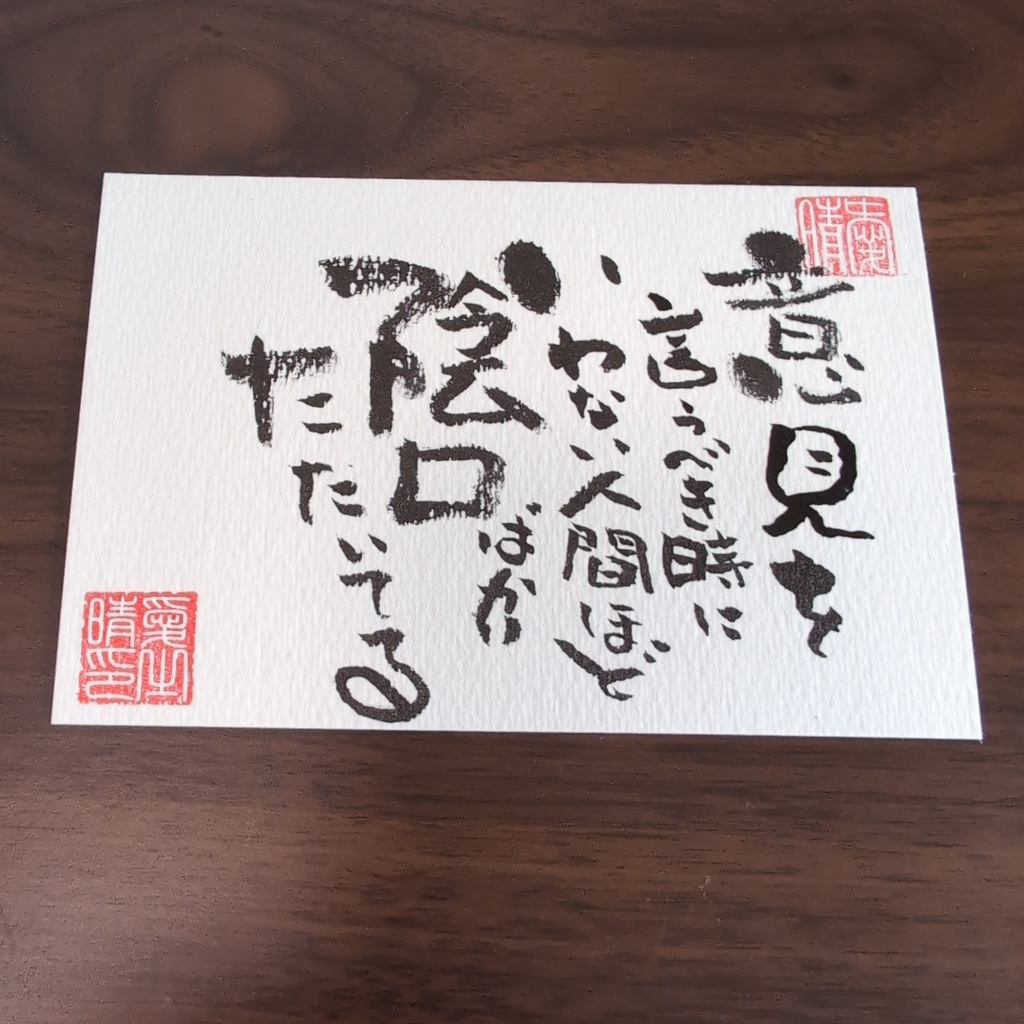 意見を
言うべき時に
いわない人間ほど
陰口ばかり
たたいてる